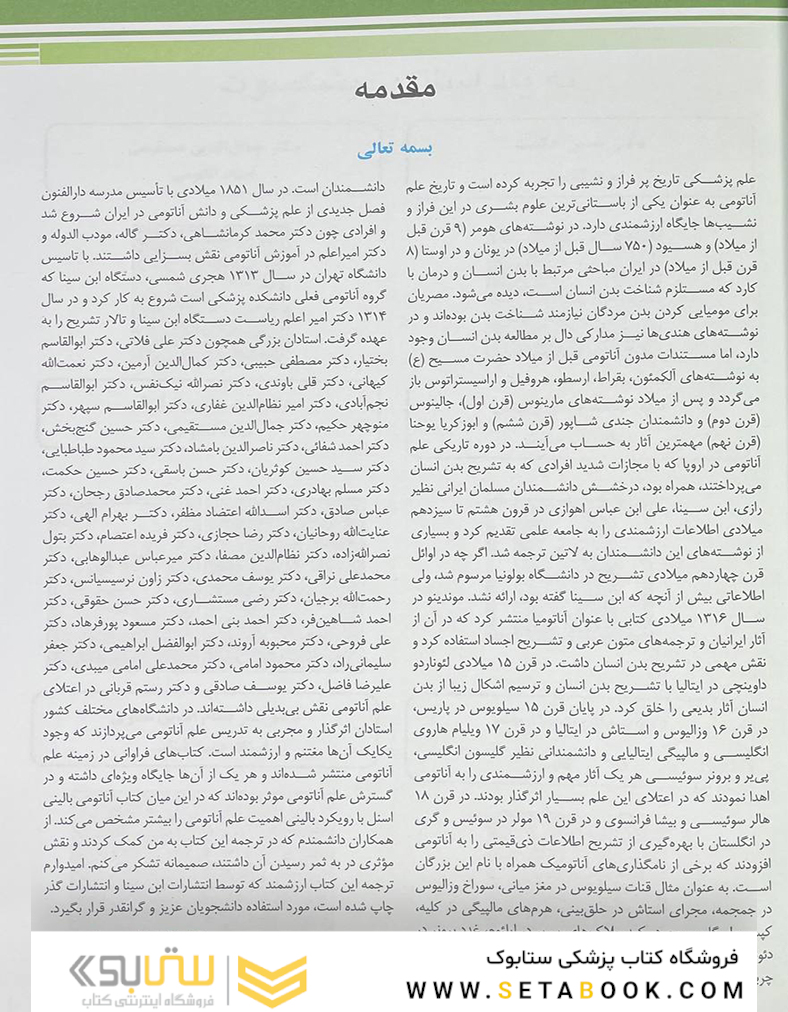 مقدمه
بسمه تعالی
علم پزشکی تاریخ پر فراز و نشیبی را تجربه کرده است و تاریخ علم
آناتومی به عنوان یکی از باستانی‌ترین علوم بشری در این فراز و
نشیب‌ها جایگاه ارزشمندی دارد. در نوشته‌های هومر (۹ قرن قبل
از میلاد) و هسیود (۷۵۰ سال قبل از میلاد) در یونان و در اوستا (۸
قرن قبل از میلاد) در ایران مباحثی مرتبط با بدن انسان و درمان با
کارد که مستلزم شناخت بدن انسان است، دیده می‌شود. مصریان
برای مومیایی کردن بدن مردگان نیازمند شناخت بدن بوده‌اند و در
نوشته‌های هندی‌ها نیز مدارکی دال بر مطالعه بدن انسان وجود
دارد، اما مستندات مدون آناتومی قبل از میلاد حضرت مسیح (ع)
به نوشته‌های آلکمئون، بقراط، ارسطو، هروفیل و اراسیستراتوس باز
می‌گردد و پس از میلاد نوشته‌های مارینوس (قرن اول)، جالینوس
(قرن دوم) و دانشمندان جندی شاپور (قرن ششم) و ابوزکریا یوحنا
(قرن نهم) مهمترین آثار به حساب می‌آیند. در دوره تاریکی علم
آناتومی در اروپا که با مجازات شدید افرادی که به تشریح بدن انسان
می‌پرداختند، همراه بود، درخشش دانشمندان مسلمان ایرانی نظیر
رازی، ابن سینا، علی ابن عباس اهوازی در قرون هشتم تا سیزدهم
میلادی اطلاعات ارزشمندی را به جامعه علمی تقدیم کرد و بسیاری
از نوشته‌های این دانشمندان به لاتین ترجمه شد. اگر چه در اوائل
قرن چهاردهم میلادی تشریح در دانشگاه بولونیا مرسوم شد، ولی
اطلاعاتی بیش از آنچه که ابن سینا گفته بود، ارائه نشد. موندینو در
سال ۱۳۱۶ میلادی کتابی با عنوان آناتومیا منتشر کرد که در آن از
آثار ایرانیان و ترجمه‌های متون عربی و تشریح اجساد استفاده کرد و
نقش مهمی در تشریح بدن انسان داشت. در قرن ۱۵ میلادی لئوناردو
داوینچی در ایتالیا با تشریح بدن انسان و ترسیم اشکال زیبا از بدن
انسان آثار بدیعی را خلق کرد. در پایان قرن ۱۵ سیلویوس در پاریس،
در قرن ۱۶ وزالیوس و استاش در ایتالیا و در قرن ۱۷ ویلیام هاروی
انگلیسی و مالپیگی ایتالیایی و دانشمندانی نظیر گلیسون انگلیسی،
پی‌یر و برونر سوئیسی هر یک آثار مهم و ارزشمندی را به آناتومی
اهدا نمودند که در اعتلای این علم بسیار اثرگذار بودند. در قرن ۱۸
هالر سوئیسی و بیشا فرانسوی و در قرن ۱۹ مولر در سوئیس و گری
در انگلستان با بهره‌گیری از تشریح اطلاعات ذی‌قیمتی را به آناتومی
افزودند که برخی از نامگذاری‌های آناتومیک همراه با نام این بزرگان
است. به عنوان مثال قنات سیلویوس در مغز میانی، سوراخ وزالیوس
در جمجمه، مجرای استاش در حلق‌بینی، هرم‌های مالپیگی در کلیه،
دانشمندان است. در سال ۱۸۵۱ میلادی با تأسیس مدرسه دارالفنون
فصل جدیدی از علم پزشکی و دانش آناتومی در ایران شروع شد
و افرادی چون دکتر محمد کرمانشاهی، دکتر گاله، مودب الدوله و
دکتر امیراعلم در آموزش آناتومی نقش بسزایی داشتند. با تاسیس
دانشگاه تهران در سال ۱۳۱۳ هجری شمسی، دستگاه ابن سینا که
گروه آناتومی فعلی دانشکده پزشکی است شروع به کار کرد و در سال
۱۳۱۴ دکتر امیر اعلم ریاست دستگاه ابن سینا و تالار تشریح را به
عهده گرفت. استادان بزرگی همچون دکتر علی فلاتی، دکتر ابوالقاسم
بختیار، دکتر مصطفی حبیبی، دکتر کمال‌الدین آرمین، دکتر نعمت‌الله
کیهانی، دکتر قلی باوندی، دکتر نصرالله نیک‌نفس، دکتر ابوالقاسم
نجم‌آبادی، دکتر امیر نظام‌الدین غفاری، دکتر ابوالقاسم سپهر، دکتر
منوچهر حکیم، دکتر جمال‌الدین مستقیمی، دکتر حسین گنج‌بخش،
دکتر احمد شفائی، دکتر ناصرالدین بامشاد، دکتر سید محمود طباطبایی،
دکتر سید حسین کوثریان، دکتر حسن باسقی، دکتر حسین حکمت،
دکتر مسلم بهادری، دکتر احمد غنی، دکتر محمدصادق رجحان، دکتر
عباس صادق، دکتر اسدالله اعتضاد مظفر، دکتر بهرام الهی، دکتر
عنایت‌الله روحانیان، دکتر رضا حجازی، دکتر فریده اعتصام، دکتر بتول
نصرالله‌زاده، دکتر نظام‌الدین مصفا، دکتر میرعباس عبدالوهابی، دکتر
محمدعلی نراقی، دکتر یوسف محمدی، دکتر زاون نرسیسیانس، دکتر
رحمت‌الله برجیان، دکتر رضی مستشاری، دکتر حسن حقوقی، دکتر
احمد شاهین‌فر، دکتر احمد بنی احمد، دکتر مسعود پورفرهاد، دکتر
علی فروحی، دکتر محبوبه آروند، دکتر ابوالفضل ابراهیمی، دکتر جعفر
سلیمانی‌راد، دکتر محمود امامی، دکتر محمدعلی امامی میبدی، دکتر
علیرضا فاضل، دکتر یوسف صادقی و دکتر رستم قربانی در اعتلای
علم آناتومی نقش بی‌بدیلی داشته‌اند. در دانشگاه‌های مختلف کشور
استادان اثرگذار و مجربی به تدریس علم آناتومی می‌پردازند که وجود
یکایک آن‌ها مغتنم و ارزشمند است. کتاب‌های فراوانی در زمینه علم
آناتومی منتشر شده‌اند و هر یک از آن‌ها جایگاه ویژه‌ای داشته و در
گسترش علم آناتومی موثر بوده‌اند که در این میان کتاب آناتومی بالینی
اسنل با رویکرد بالینی اهمیت علم آناتومی را بیشتر مشخص می‌کند. از
همکاران دانشمندم که در ترجمه این کتاب به من کمک کردند و نقش
مؤثری در به ثمر رسیدن آن داشتند، صمیمانه تشکر می‌کنم. امیدوارم
ترجمه این کتاب ارزشمند که توسط انتشارات ابن سینا و انتشارات گذر
چاپ شده است، مورد استفاده دانشجویان عزیز و گرانقدر قرار بگیرد.
فروشگاه کتاب پزشکی ستابوک
WWW.SETABOOK.COM
ستابوک
فروشگاه اینترنتی کتاب